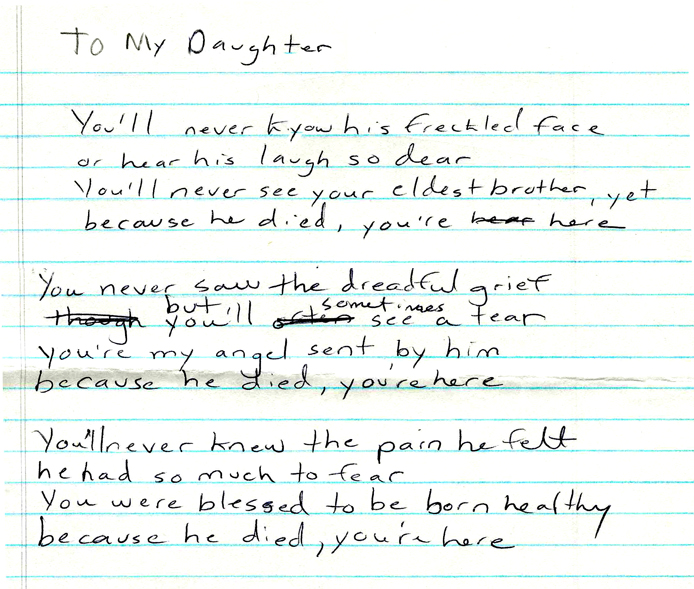 To My Daughter
You'll never kyow his freckled face
or hear his laugh so dear
You'll never see your eldest brother, yet
because he died, you're hear here
You never saw the dreadful grief
though but you'll often sometimes see a tear
you're my angel sent by him
because he died, you're here
You'll never knew the pain he felt
he had so much to fear
You were blessed to be born healthy
because he died, you're here